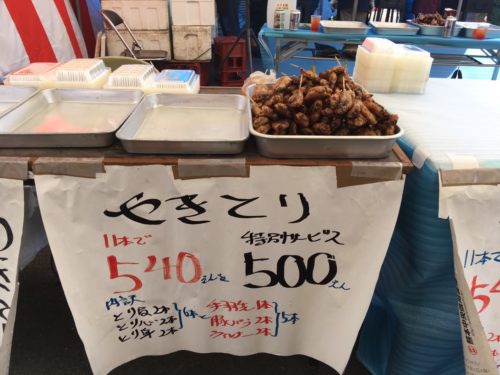 やきとり
11本で
540えんを
特別サービス
500えん
内訳
とり皮2本
とり心2本
とり身2本
6本と
手羽先1本
豚バラ2本
5本